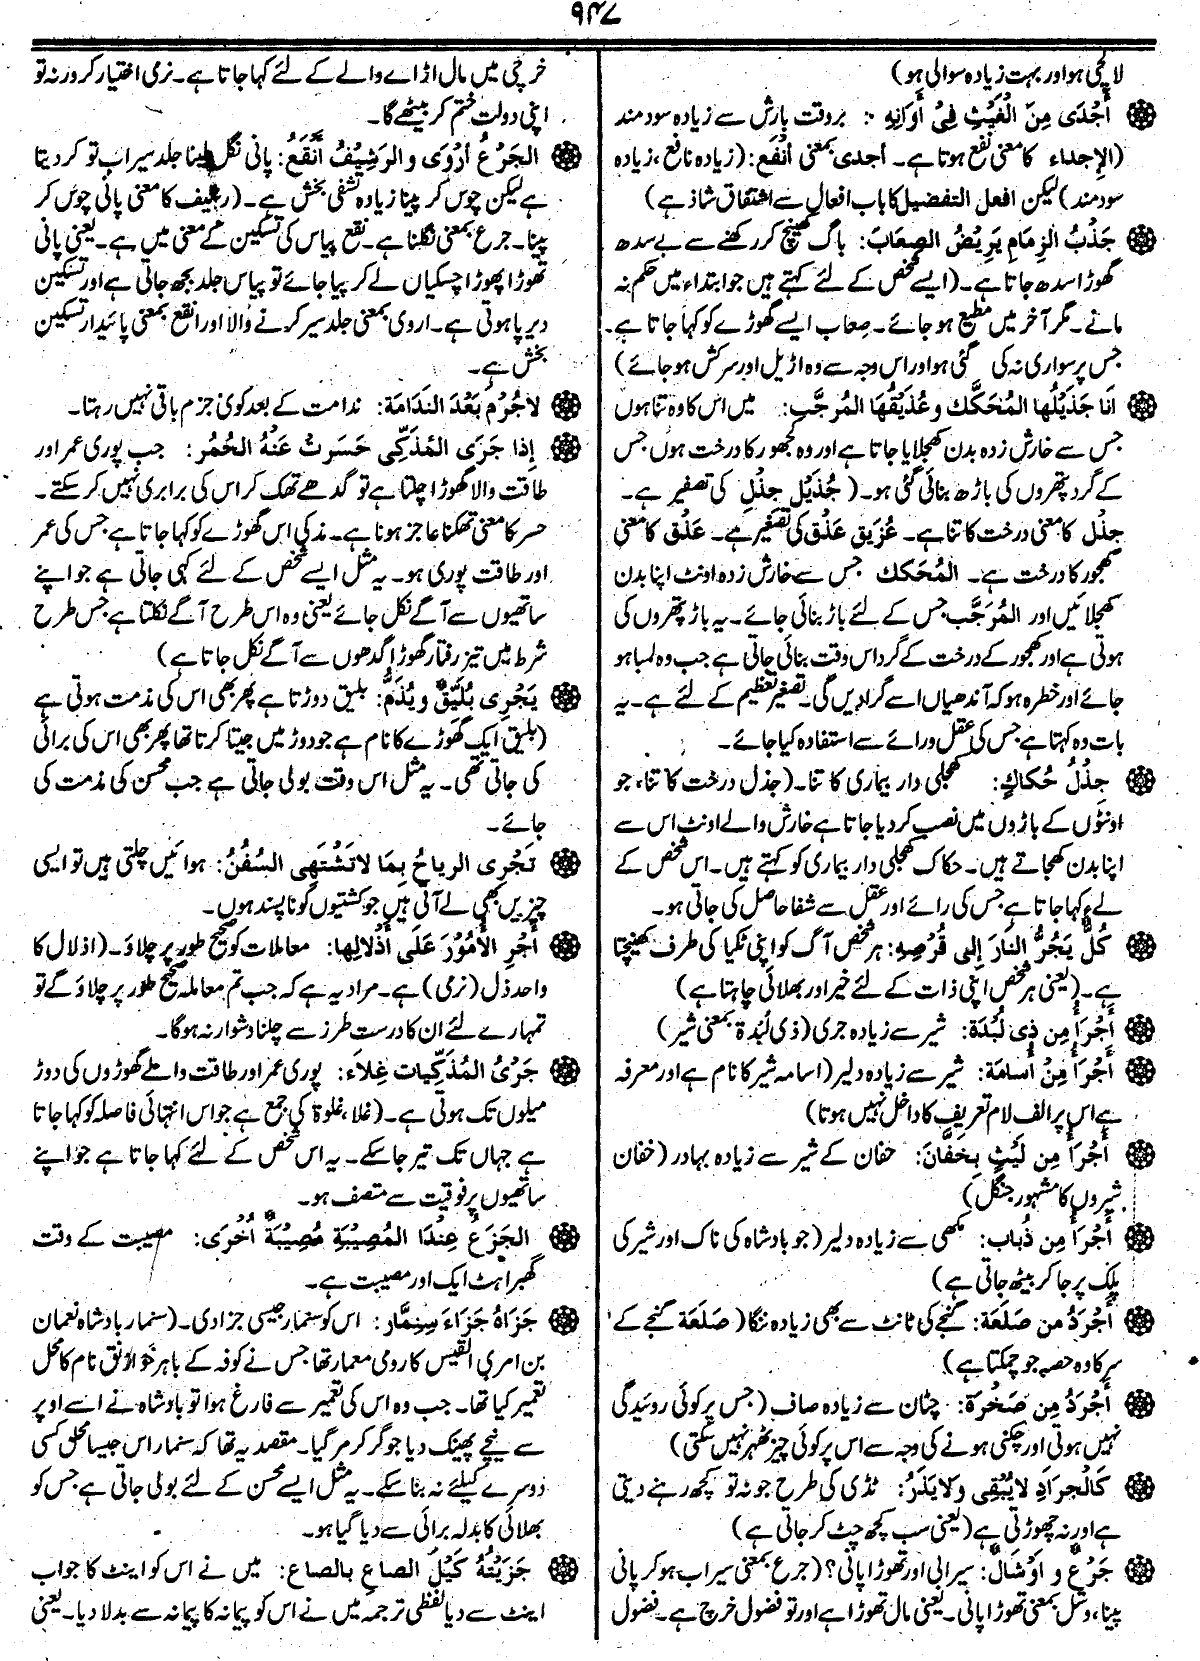 ۹۴۷
لالچی ہو اور بہت زیادہ سوالی ہو)
أَجْدَى مِنَ الْغَيْثِ فِيْ أَوَانِهِ : بروقت بارش سے زیادہ سود مند
(الإجداء کا معنی نفع ہوتا ہے۔ أجدى بمعنی أَنْفَع: (زیادہ نافع، زیادہ
سودمند) لیکن افعل التفضیل کا باب افعال سے اشتقاق شاذ ہے)
جَذْبُ الزِّمَامِ يَرِيْضُ الصِّعَابَ: باگ کھینچ کر رکھنے سے بے سدھ
گھوڑا سدھ جاتا ہے۔ (ایسے شخص کے لئے کہتے ہیں جو ابتداء میں حکم نہ
مانے۔ مگر آخر میں مطیع ہو جائے۔ صعاب ایسے گھوڑے کو کہا جاتا ہے۔
جس پر سواری نہ کی گئی ہو اور اس وجہ سے وہ اڑیل اور سرکش ہو جائے)
اَنَا جُذَيْلُهَا الْمُحَكَّك وعُذَيْقُهَا المُرَجَّب: میں اس کا وہ تنا ہوں
جس سے خارش زدہ بدن کھجلایا جاتا ہے اور وہ کھجور کا درخت ہوں جس
کے گرد پتھروں کی باڑھ بنائی گئی ہو۔ ( جُذَيْل جِذْلِ کی تصغیر ہے۔
جِذْل کا معنی درخت کا تنا ہے۔ عُزَیق عَذْق کی تصغیر ہے۔ عَذْق کا معنی
کھجور کا درخت ہے۔ المُحَكك جس سے خارش زدہ اونٹ اپنا بدن
کھجلائیں اور المُرَجَّب جس کے لئے باڑ بنائی جائے۔ یہ باڑ پتھروں کی
ہوتی ہے اور کھجور کے درخت کے گرد اس وقت بنائی جاتی ہے جب وہ لمبا ہو
جائے اور خطرہ ہو کہ آندھیاں اسے گرا دیں گی۔ تصغیر تعظیم کے لئے ہے۔ یہ
بات وہ کہتا ہے جس کی عقل ورائے سے استفادہ کیا جائے۔
جِذْلُ حُكاكٍ: کھجلی دار بیماری کا تنا۔ (جذل درخت کا تنا، جو
اونٹوں کے باڑوں میں نصب کر دیا جاتا ہے خارش والے اونٹ اس سے
اپنا بدن کھجاتے ہیں۔ حکاک کھجلی دار بیماری کو کہتے ہیں۔ اس شخص کے
لیے کہا جاتا ہے جس کی رائے اور عقل سے شفا حاصل کی جاتی ہو۔
كُلٌّ يَجُرُّ النَارَ إلى قُرْصِهِ: ہر شخص آگ کو اپنی ٹکیا کی طرف کھینچتا
ہے۔ (یعنی ہر شخص اپنی ذات کے لئے خیر اور بھلائی چاہتا ہے)
أَجْرَأُ مِن ذِي لُبْدَة: شیر سے زیادہ جری (ذی لُبْدَة بمعنی شیر)
أَجْرَأُ مِنْ أُسَامَة: شیر سے زیادہ دلیر (اسامہ شیر کا نام ہے اور معرفہ
ہے اس پر الف لام تعریف کا داخل نہیں ہوتا)
أَجْرَأُ مِن لَيْثٍ بِخَفَّان: خفان کے شیر سے زیادہ بہادر (خفان
شیروں کا مشہور جنگل)
أَجْرَأُ مِن ذُباب: مکھی سے زیادہ دلیر (جو بادشاہ کی ناک اور شیر کی
پلک پر جا کر بیٹھ جاتی ہے)
أَجْرَدُ من صَلَعَة: گنجے کی ٹانٹ سے بھی زیادہ ننگا ( صَلَعَة گنجے کے
سر کا وہ حصہ جو چمکتا ہے)
أَجْرَدُ مِن صَخْرَة: چٹان سے زیادہ صاف (جس پر کوئی روئیدگی
نہیں ہوتی اور چکنی ہونے کی وجہ سے اس پر کوئی چیز ٹھہر نہیں سکتی)
كَالْجِرَادِ لايُبْقِى ولايَذَرُ: ٹڈی کی طرح جو نہ تو کچھ رہنے دیتی
ہے اور نہ چھوڑتی ہے (یعنی سب کچھ چٹ کر جاتی ہے)
جَرْعٌ و اَوْشَالٌ: سیرابی اور تھوڑا پانی؟ (جرع بمعنی سیراب ہو کر پانی
پینا، وشل بمعنی تھوڑا پانی۔ یعنی مال تھوڑا ہے اور تو فضول خرچ ہے۔ فضول
خرچی میں مال اڑاے والے کے لئے کہا جاتا ہے۔ نرمی اختیار کرو ورنہ تو
اپنی دولت ختم کر بیٹھے گا۔
الجَرْعُ أَرْوَى والرَشِيْفُ أَنْقَعُ: پانی نگل لینا جلد سیراب تو کر دیتا
ہے لیکن چوس کر پینا زیادہ تشفی بخش ہے۔ (رشیف کا معنی پانی چوس کر
پینا۔ جرع بمعنی نگلنا ہے۔ نقع پیاس کی تسکین کے معنی میں ہے۔ یعنی پانی
تھوڑا تھوڑا چسکیاں لے کر پیا جائے تو پیاس جلد بجھ جاتی ہے اور تسکین
دیرپا ہوتی ہے۔ اروی بمعنی جلد سیر کرنے والا اور انقع بمعنی پائیدار تسکین
بخش ہے۔
لاَجُرْمَ بَعْدَ النَدَامَة: ندامت کے بعد کوئی جرم باقی نہیں رہتا۔
إذا جَرَى المُذَكِّى حَسَرَتْ عَنْهُ الحُمُر: جب پوری عمر اور
طاقت والا گھوڑا چلتا ہے تو گدھے تھک کر اس کی برابری نہیں کر سکتے۔
حسر کا معنی تھکنا عاجز ہونا ہے۔ مذکی اس گھوڑے کو کہا جاتا ہے جس کی عمر
اور طاقت پوری ہو۔ یہ مثل ایسے شخص کے لئے کہی جاتی ہے جو اپنے
ساتھیوں سے آگے نکل جائے یعنی وہ اس طرح آگے نکلتا ہے جس طرح
شرط میں تیز رفتار گھوڑا گدھوں سے آگے نکل جاتا ہے)
يَجْرِى بُلَيْقٌ ويُذَمُّ: بلیق دوڑتا ہے پھر بھی اس کی مذمت ہوتی ہے
(بلیق ایک گھوڑے کا نام ہے جو دوڑ میں جیتا کرتا تھا پھر بھی اس کی برائی
کی جاتی تھی۔ یہ مثل اس وقت بولی جاتی ہے جب محسن کی مذمت کی
جائے۔
تَجْرِى الرِياحُ بِمَا لاتَشْتَهِي السُفُنُ: ہوائیں چلتی ہیں تو ایسی
چیزیں بھی لے آتی ہیں جو کشتیوں کو ناپسند ہوں۔
أَجْرِ الأُمُوْرَ عَلَى أَذْلالِها: معاملات کو صحیح طور پر چلاؤ۔ (اذلال کا
واحد ذل (نرمی) ہے۔ مراد یہ ہے کہ جب تم معاملہ صحیح طور پر چلاؤ گے تو
تمہارے لئے ان کا درست طرز سے چلنا دشوار نہ ہوگا۔
جَرْىُ المُذَكِّيات غِلاَء: پوری عمر اور طاقت والے گھوڑوں کی دوڑ
میلوں تک ہوتی ہے۔ (غلا، غلوة کی جمع ہے جو اس انتہائی فاصلہ کو کہا جاتا
ہے جہاں تک تیر جا سکے۔ یہ اس شخص کے لئے کہا جاتا ہے جو اپنے
ساتھیوں پر فوقیت سے متصف ہو۔
الجَزَعُ عِنْدَا المُصِيْبَةِ مُصِيْبَةٌ أُخْرَى: مصیبت کے وقت
گھبراہٹ ایک اور مصیبت ہے۔
جَزَاهُ جَزَاءَ سِنِمَّار: اس کو سنمار جیسی جزا دی۔ (سنمار بادشاہ نعمان
بن امری القیس کا رومی معمار تھا جس نے کوفہ کے باہر خَوَرْنَق نام کا محل
تعمیر کیا تھا۔ جب وہ اس کی تعمیر سے فارغ ہوا تو بادشاہ نے اسے اوپر
سے نیچے پھینک دیا جو گر کر مر گیا۔ مقصد یہ تھا کہ سنمار اس جیسا محل کسی
دوسرے کیلئے نہ بنا سکے۔ یہ مثل ایسے محسن کے لئے بولی جاتی ہے جس کو
بھلائی کا بدلہ برائی سے دیا گیا ہو۔
جَزَيْتُهُ كَيْلَ الصاعِ بالصاع: میں نے اس کو اینٹ کا جواب
اینٹ سے دیا لفظی ترجمہ میں نے اس کو پیمانہ کا پیمانہ سے بدلا دیا۔ یعنی